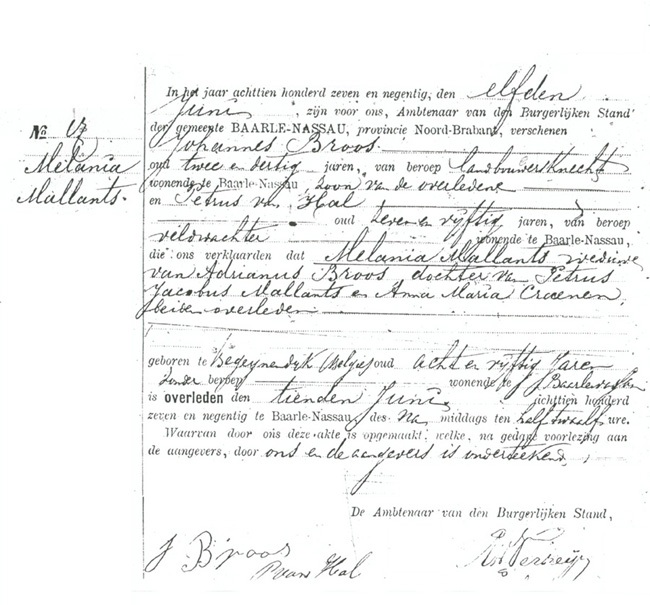 In het jaar achttien honderd zeven en negentig, den elfden
Juni, zijn voor ons, Ambtenaar van den Burgerlijken Stand
der gemeente BAARLE-NASSAU, provincie Noord-Brabant, verschenen
Johannes Broos.
oud twee en dertig jaren, van beroep landbouwersknecht
wonende te Baarle-Nassau, zoon van de overledene
en Petrus van Hal
oud zeven en vijftig jaren, van beroep
veldwachter wonende te Baarle-Nassau,
die ons verklaarden dat Melania Mallants weduwe
van Adrianus Broos, dochter van Petrus
Jacobus Mallants en Anna Maria Croenen,
beiden overleden
No 17
Melania
Mallants.
geboren te (België) oud acht en vijftig Jaren
zonder beroep wonende te Baarle-Nassau
is overleden den tienden Juni, achttien honderd
zeven en negentig te Baarle-Nassau, des Na middags ten half twaalf ure.
Waarvan door ons deze akte is opgemaakt, welke, na gedane voorlezing aan
de aangevers, door ons en de aangevers is onderteekend.
De Ambtenaar van den Burgerlijken Stand,
J Broos
P van Hal